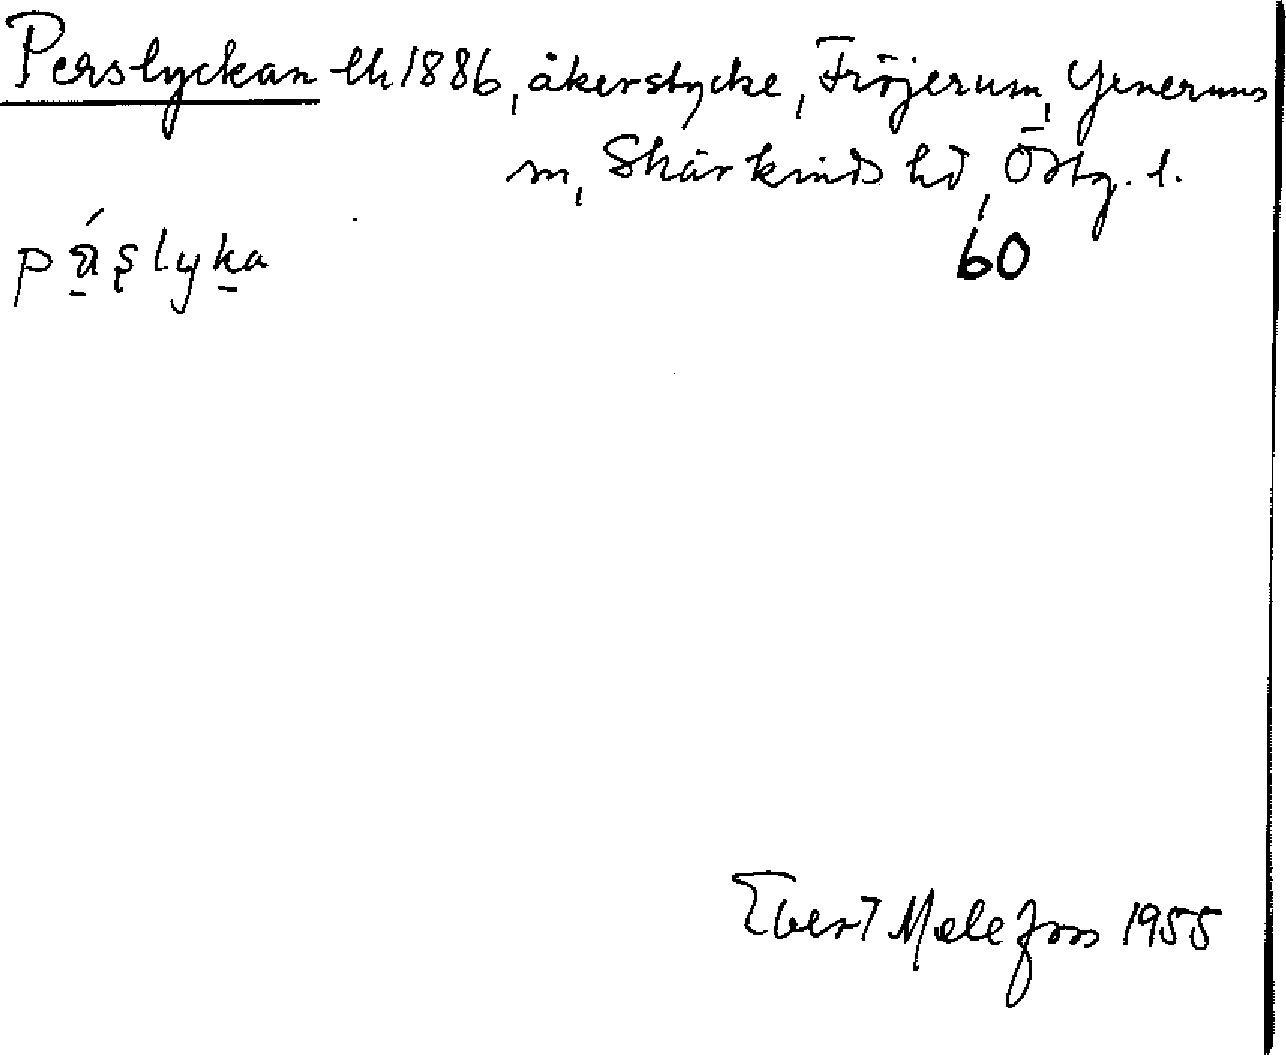 Perslyckan lh 1886, åkerstycke, Fröjerum, Yxnerums
sn, Skärkinds hd, Östg. l.
60
Evert Melefors 1955